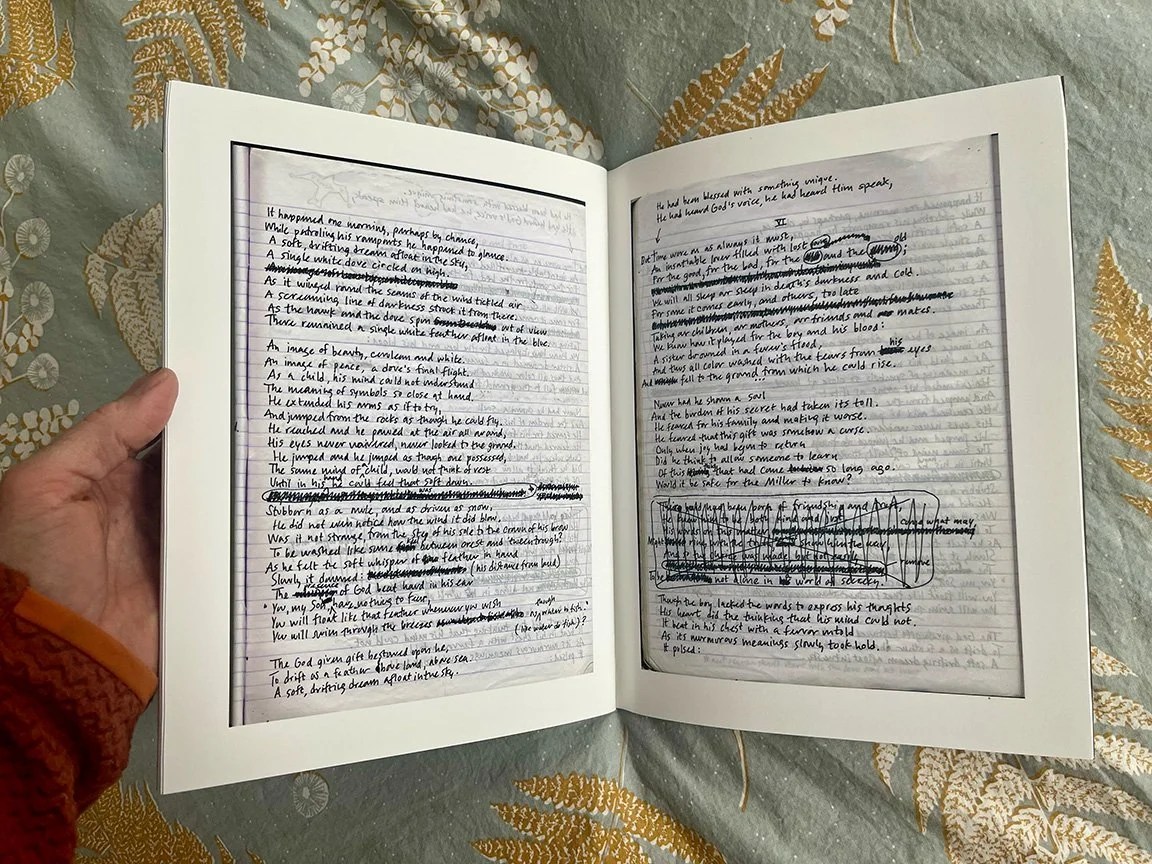 It happened one morning, perhaps by chance,
While patroling his ramparts he happened to glance.
A soft, drifting dream afloat in the sky,
A single white dove circled on high.
As it winged round the seams of the wind tickled air
A screaming line of darkness struck it from there.
As the hawk and the dove spun out of view
There remained a single white feather afloat in the blue.
An image of beauty, cerulean and white.
An image of peace, a dove's final flight.
As a child, his mind could not understand
The meaning of symbols so close at hand.
He extended his arms as if to try,
And jumped from the rocks as though he could fly.
He reached and he pawed at the air all around,
His eyes never wavered, never looked to the ground.
He jumped and he jumped as though one possessed,
The same mind of child, would not think of rest
Until in his hand could feel that soft down.
Stubborn as a mule, and as driven as snow,
He did not even notice how the wind it did blow.
Was it not strange, from the step of his sole to the crown of his brow
To be washed like some between crest and then trough?
As he felt the soft whisper of feather in hand
Slowly it dawned: (his distance from land)
The of God beat hard in his ear
"You, my Son, have nothing to fear,
You will float like that feather whenever you wish
You will swim through the breezes though
(like water do fish)?
The God given gift bestowed upon he,
To drift as a feather above land, above sea.
A soft, drifting dream afloat in the sky.
He had been blessed with something unique.
He had heard God's voice, he had heard Him speak,
VI
But time wore on as always it must,
An insatiable lover filled with lost
old
For the good, for the bad, for the and the ;
We will all sleep our sleep in death's darkness and cold.
For some it comes early, and others, too late
Taking our children, our mothers, our friends and makes.
We know how it played for the boy and his blood:
A sister drowned in a fever's flood,
his
And thus all color washed with the tears from eyes
And fell to the ground from which he could rise.
...
Never had he shown a soul
And the burden of his secret had taken its toll.
He feared for his family and making it worse.
He feared that this gift was somehow a curse.
Only when joy had begun to return
Did he think to allow someone to learn
Of this that had come so long ago.
Would it be safe for the Miller to know?
There had been born of friendship and trust,
He knew him to be both kind and
come what may,
His words on this matter
Might show him the way,
And so the choice was made but not easily
remove
To be not alone in his world of secrecy.
Though the boy lacked the words to express his thoughts
His heart did the thinking that his mind could not.
It beat in his chest with a fervor untold
As its murmurous meanings slowly took hold.
It pulsed: